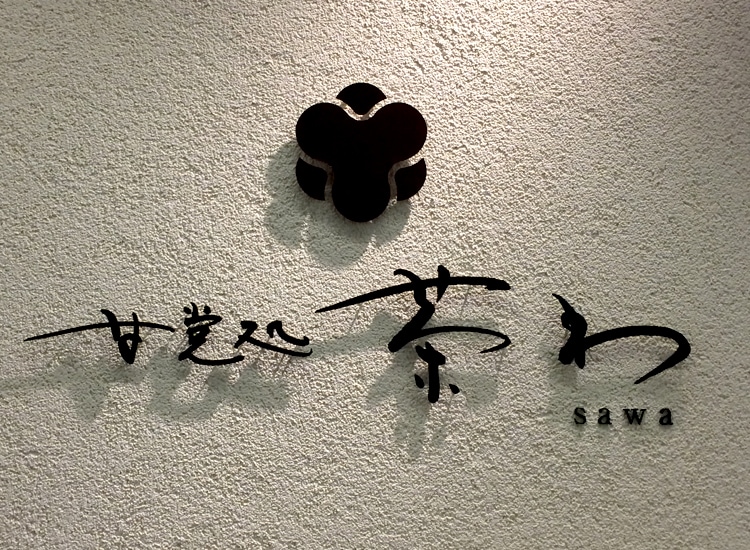 甘党処 茶わ
sawa